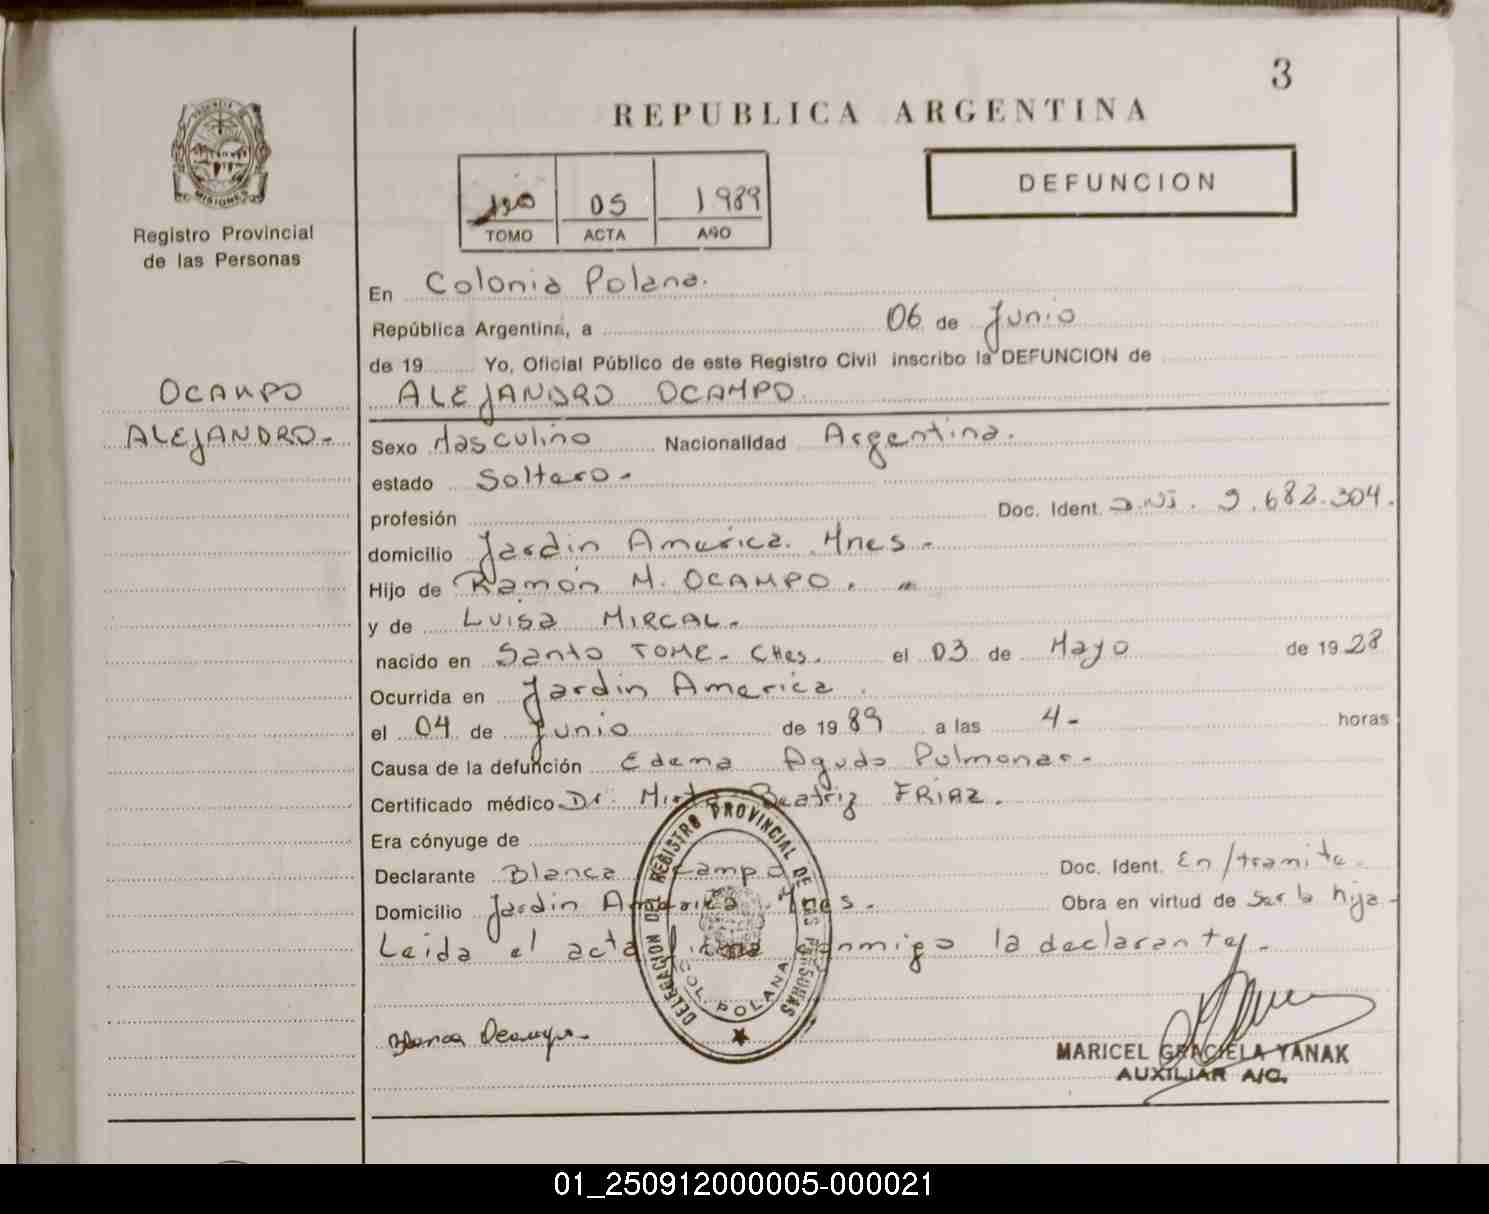 3
REPUBLICA ARGENTINA
DEFUNCION
05 1989
TOMO ACTA AÑO
MISIONES
Registro Provincial
de las Personas
OCAMPO
ALEJANDRO.-
En Colonia Polana.
República Argentina, a 06 de Junio
de 19 Yo, Oficial Público de este Registro Civil inscribo la DEFUNCION de
ALEJANDRO OCAMPO.
Sexo Masculino Nacionalidad Argentina.
estado Soltero.-
profesión Doc. Ident. D.NI. 9.682.304.
domicilio Jardin America. Mnes.-
Hijo de Ramón M. OCAMPO.
y de Luisa MIRCAL.-
nacido en Santo TOME. CTtes. el 03 de Mayo de 1928
Ocurrida en Jardin America.
el 04 de Junio de 1989 a las 4- horas
Causa de la defunción Edema Agudo Pulmonar.-
Certificado médico Dr. Mirta Beatriz FRIAZ.
Era cónyuge de
Declarante Blanca Ocampo Doc. Ident. En/tramite.
Domicilio Jardin America. Mnes.- Obra en virtud de Ser la hija.-
Leida el acta firma conmigo la declarante.-
DELEGACION DEL REGISTRO PROVINCIAL DE LAS PERSONAS
COL. POLANA
Blanca Ocampo.-
MARICEL GRACIELA YANAK
AUXILIAR A/C.
01_250912000005-000021